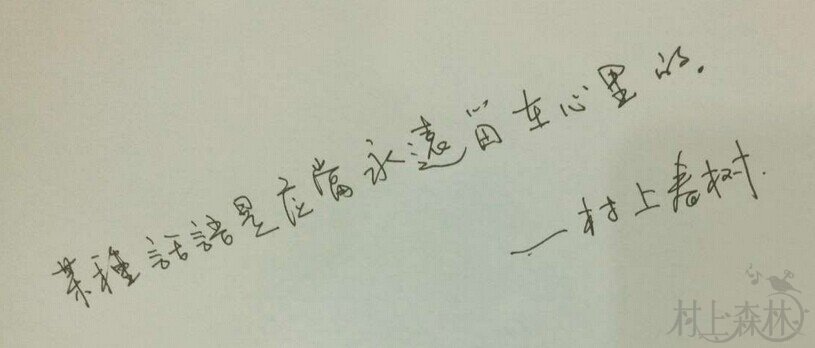 某種話語是应當永遠留在心里的.
—村上春树.
村上森林